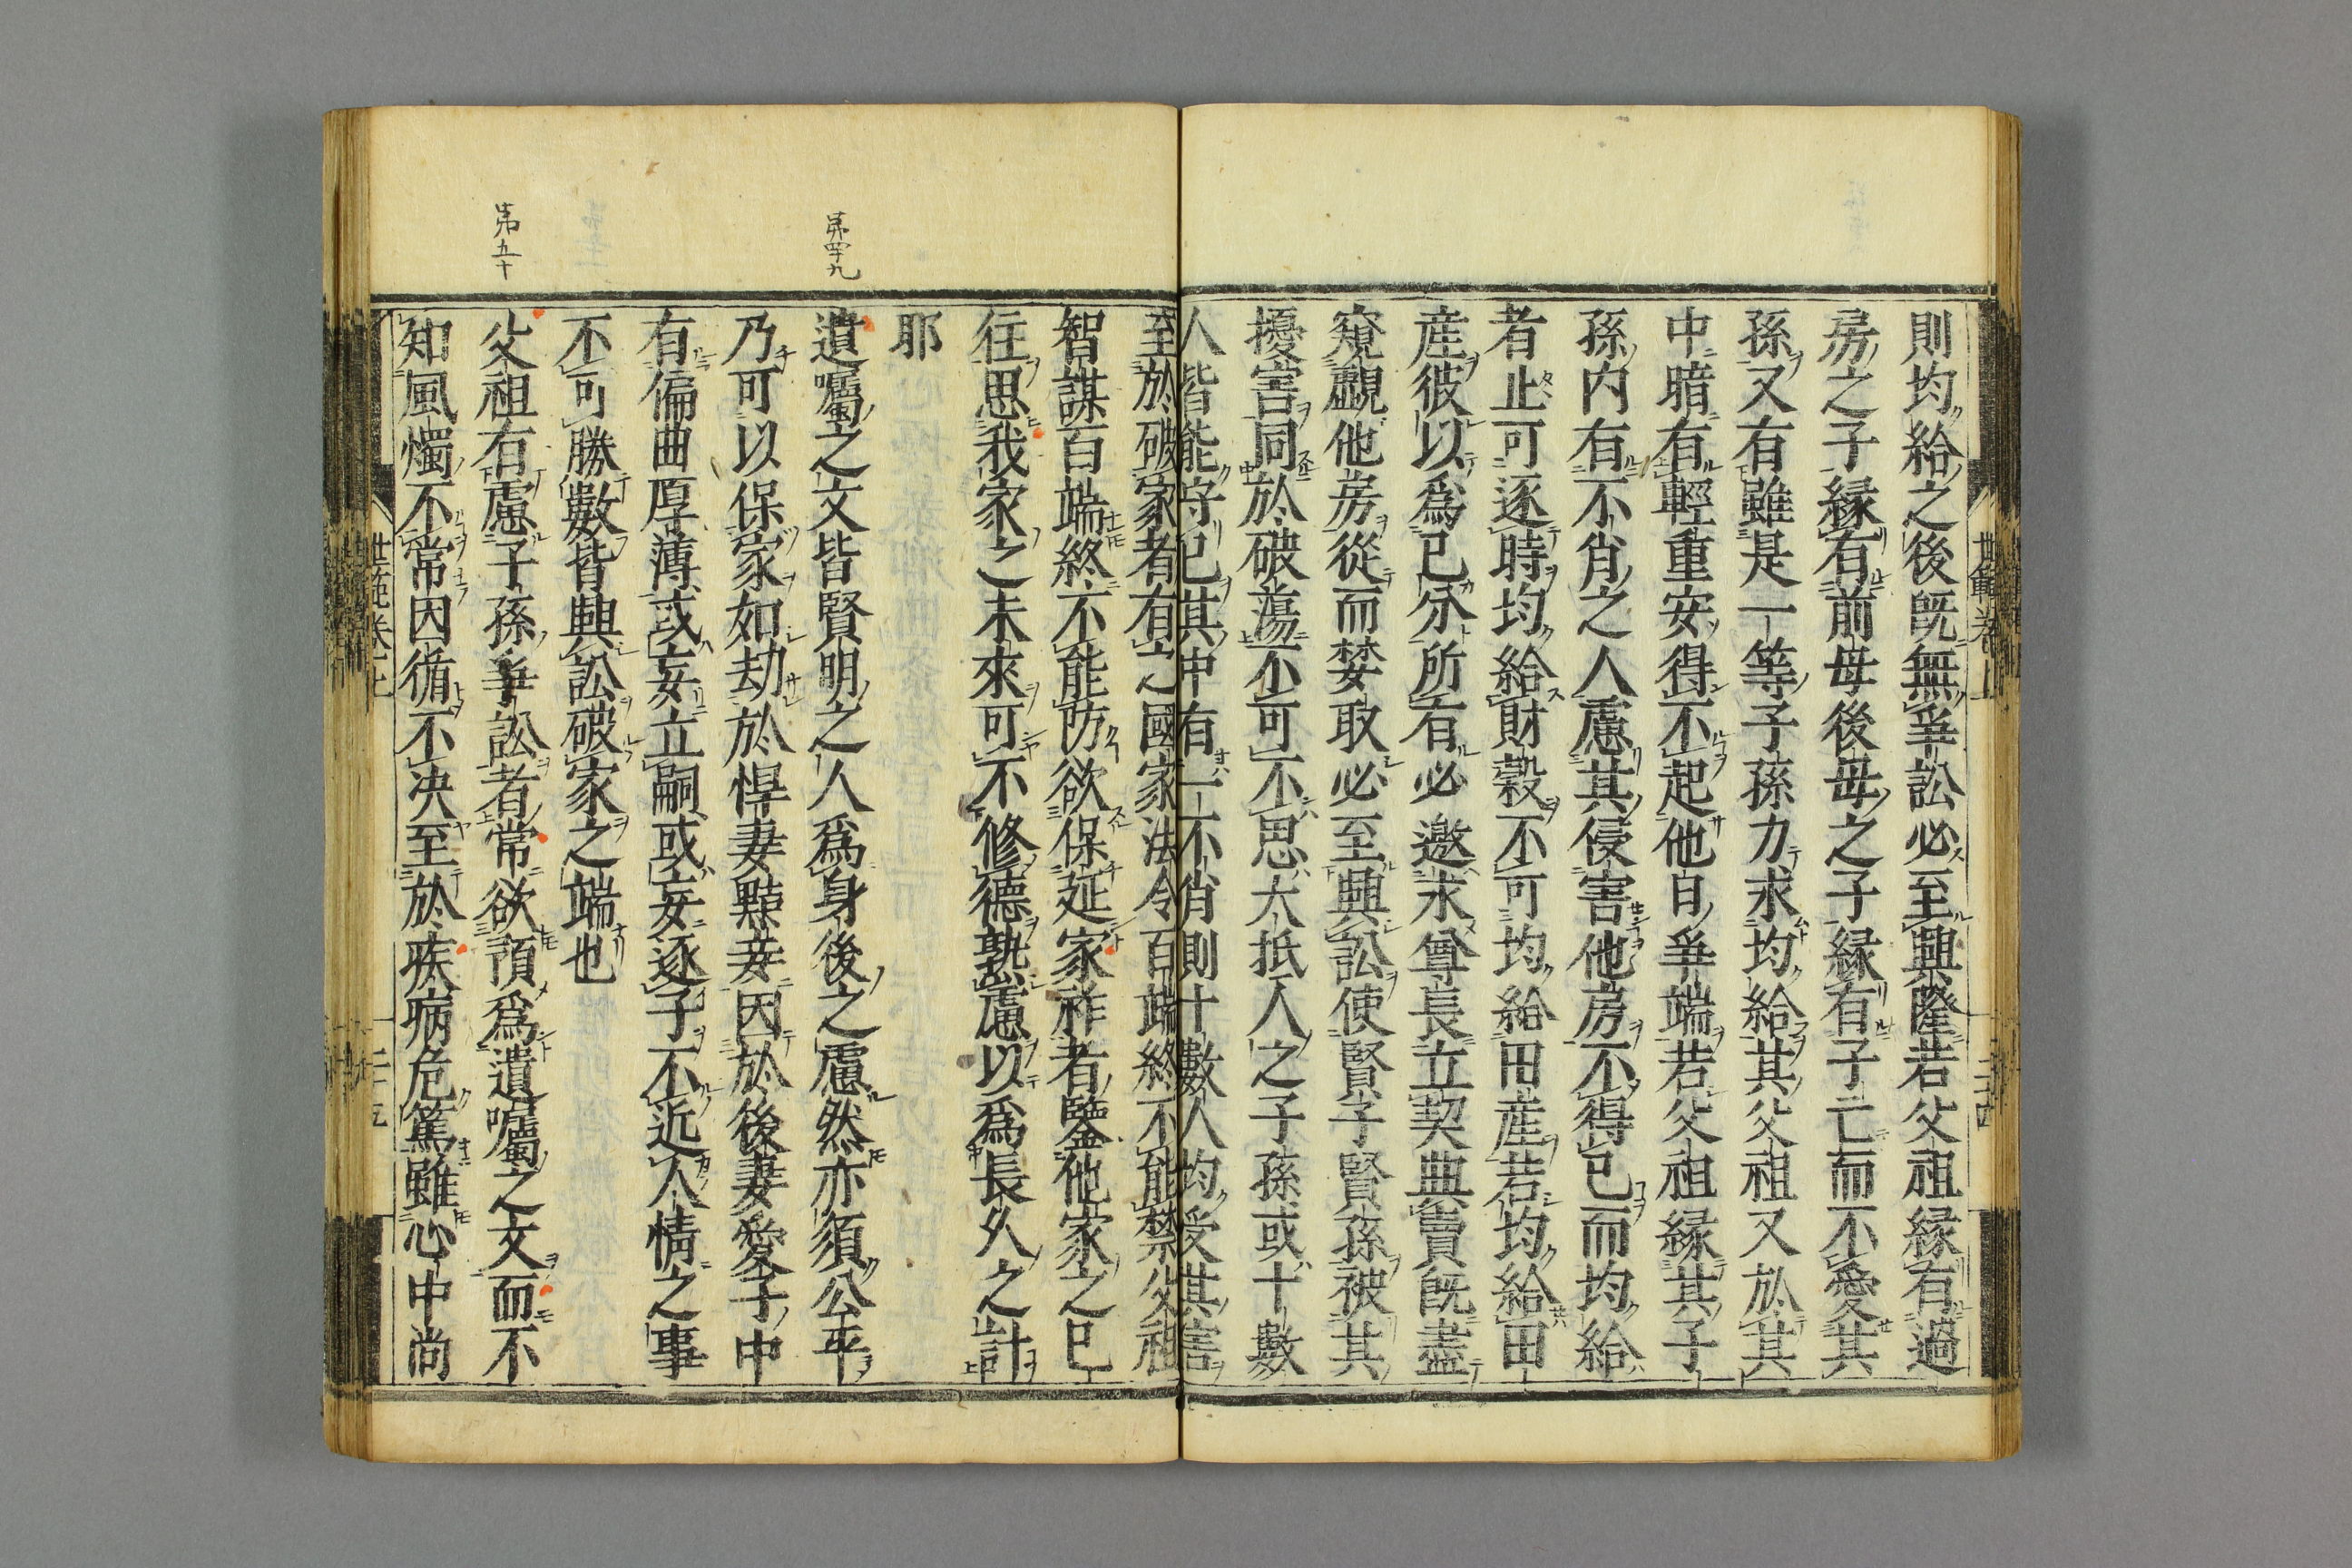 則均給之後既無爭訟必至興隆若父祖縁有過
房之子縁有前母後母之子縁有子亡而不愛其
孫又有雖是一等子孫力求均給其父祖又於其
中暗有輕重安得不起他日爭端若父祖縁其子
孫内有不肖之人慮其侵害他房不得已而均給
者止可逐時均給財穀不可均給田産若均給田
産彼以爲己分所有必邀求尊長立契典賣既盡
窺覰他房從而婪取必至興訟使賢子賢孫被其
擾害同於破蕩不可不思大抵人之子孫或十數
人皆能守己其中有一不肖則十數人均受其害
至於破家者有之國家法令百端終不能禁父祖
智謀百端終不能防欲保延家祚者鑒他家之已
往思我家之未來可不修德熟慮以爲長久之計
耶
第四十九
遺囑之文皆賢明之人爲身後之慮然亦須公平
乃可以保家如劫於悍妻黠妾因於後妻愛子中
有偏曲厚薄或妄立嗣或妄逐子不近人情之事
不可勝數皆興訟破家之端也
第五十
父祖有慮子孫爭訟者常欲預爲遺囑之文而不
知風燭不常因循不决至於疾病危篤雖心中尚
世範卷上
二十四
世範卷上
二十五